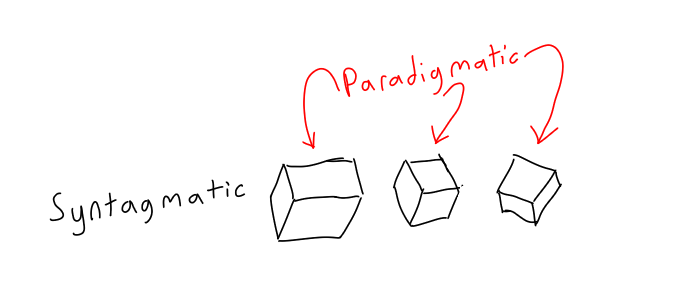 Paradigmatic
Syntagmatic